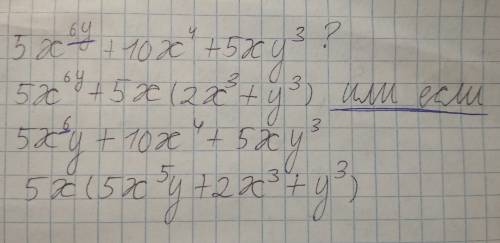 5x^{6y} + 10x^4 + 5xy^3 ?
5x^{6y} + 5x(2x^3 + y^3) или если
5x^6y + 10x^4 + 5xy^3
5x(5x^5y + 2x^3 + y^3)